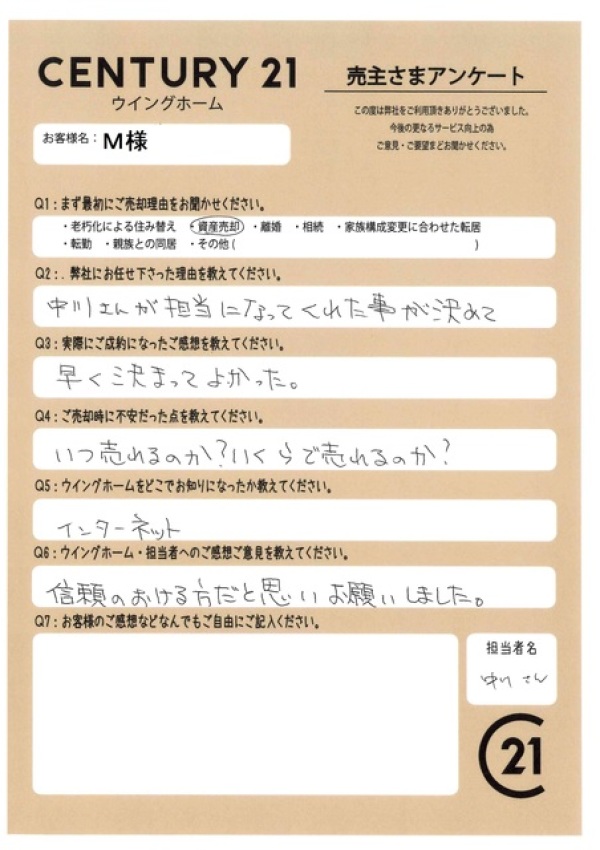 CENTURY 21
ウイングホーム
売主さまアンケート
この度は弊社をご利用頂きありがとうございました。
今後の更なるサービス向上の為
ご意見・ご要望までお聞かせください。
お客様名：M様
Q1：まず最初にご売却理由をお聞かせください。
・老朽化による住み替え ・資産売却 ・離婚 ・相続 ・家族構成変更に合わせた転居
・転勤 ・親族との同居 ・その他( )
Q2：. 弊社にお任せ下さった理由を教えてください。
中川さんが担当になってくれた事が決めて
Q3：実際にご成約になったご感想を教えてください。
早く決まってよかった。
Q4：ご売却時に不安だった点を教えてください。
いつ売れるのか？いくらで売れるのか？
Q5：ウイングホームをどこでお知りになったか教えてください。
インターネット
Q6：ウイングホーム・担当者へのご感想ご意見を教えてください。
信頼のおける方だと思いお願いしました。
Q7：お客様のご感想などなんでもご自由にご記入ください。
担当者名
中川さん
C21